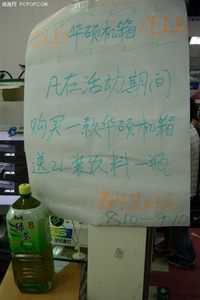 泡泡网 PCPOP.COM
华硕机箱
凡在活动期间
购买一款华硕机箱
送2L装饮料一瓶
8.10—9.10